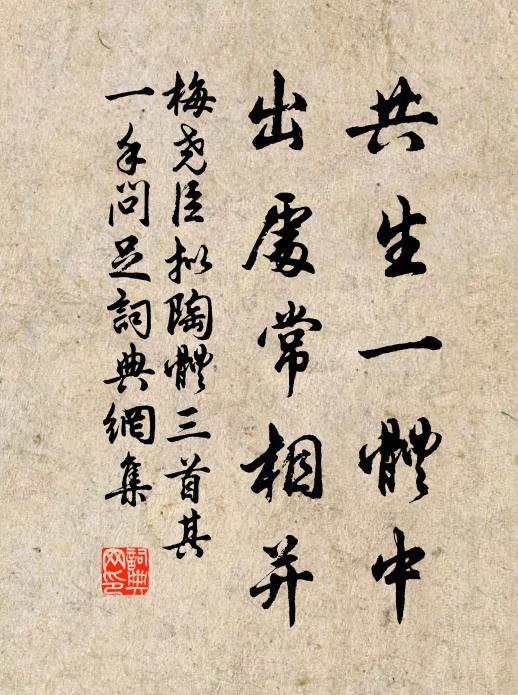 共生一體中
出處常相并
梅堯臣擬陶體三首其
一手問足詞典網集
詞典网印